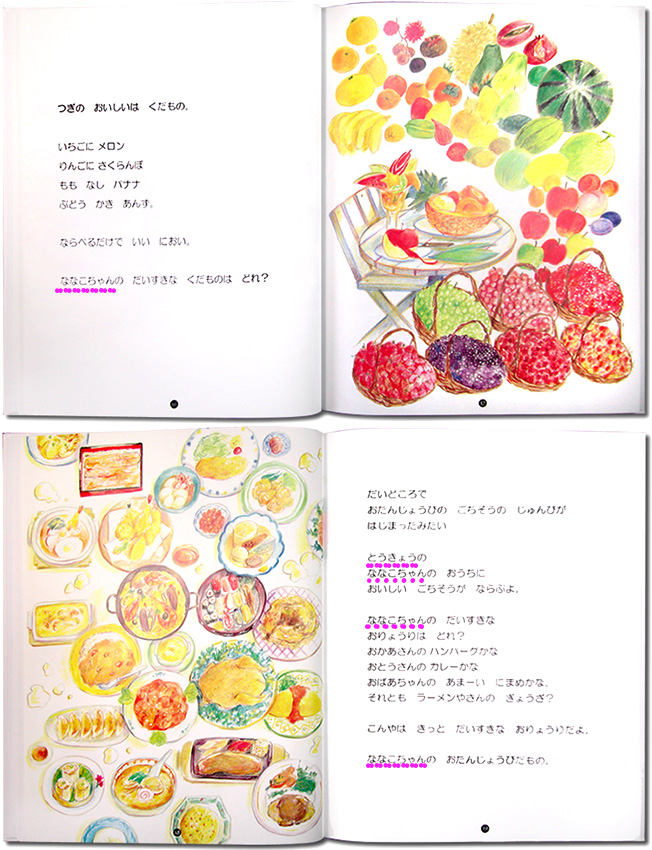 つぎの おいしいは くだもの。
いちごに メロン
りんごに さくらんぼ
もも なし バナナ
ぶどう かき あんず。
ならべるだけで いい におい。
ななこちゃんの だいすきな くだものは どれ？
だいどころで
おたんじょうびの ごちそうの じゅんびが
はじまったみたい
とうきょうの
ななこちゃんの おうちに
おいしい ごちそうが ならぶよ。
ななこちゃんの だいすきな
おりょうりは どれ？
おかあさんの ハンバーグかな
おとうさんの カレーかな
おばあちゃんの あまーい にまめかな。
それとも ラーメンやさんの ぎょうざ？
こんやは きっと だいすきな おりょうりだよ。
ななこちゃんの おたんじょうびだもの。